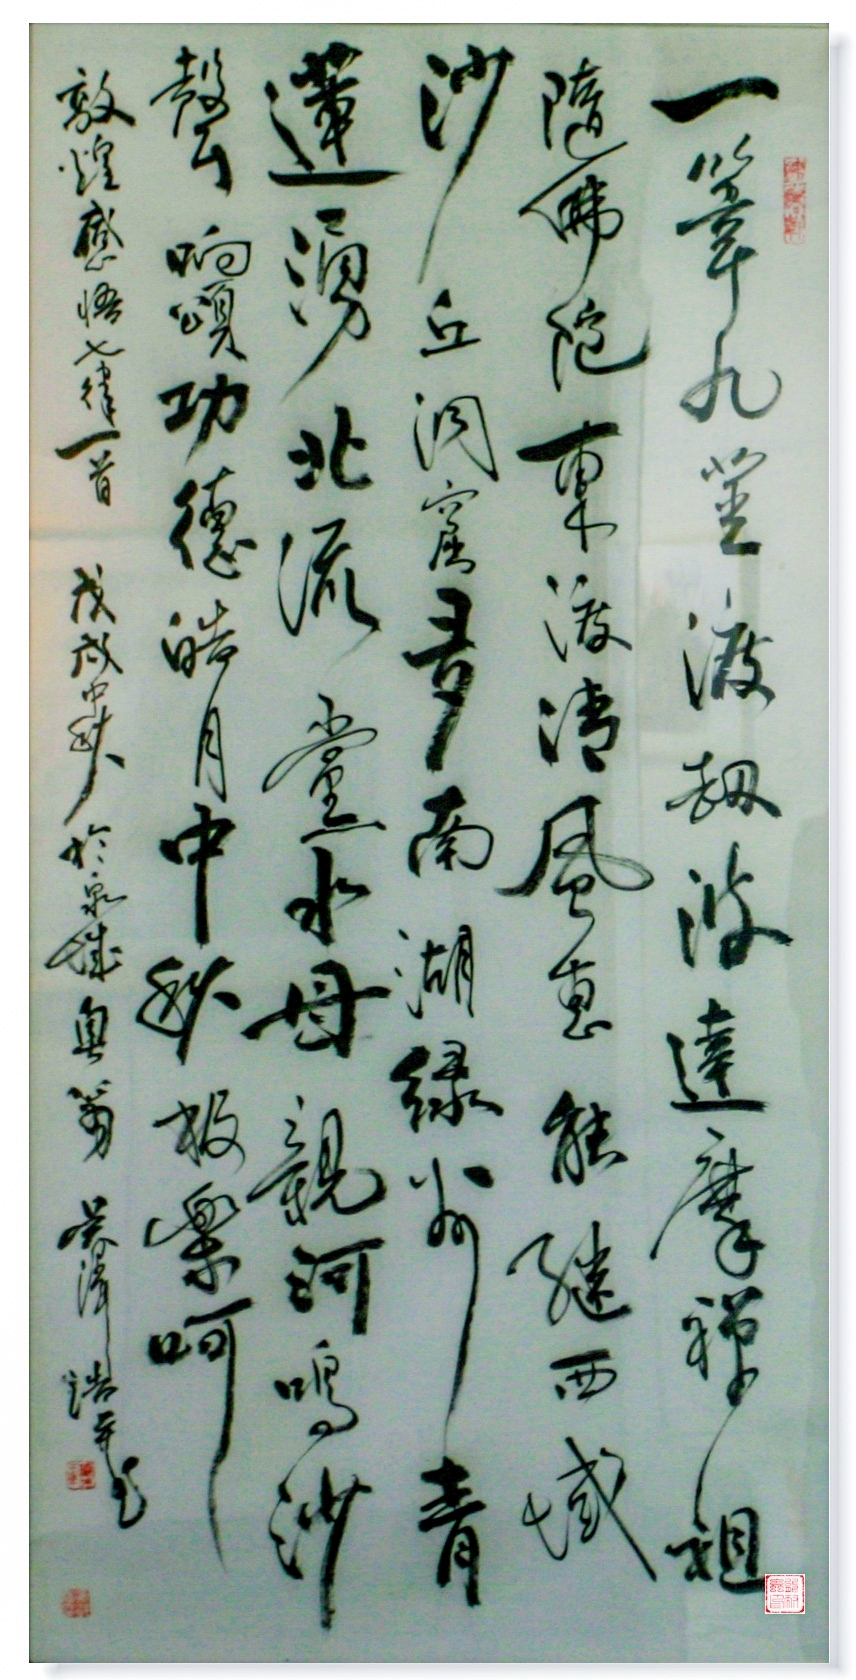 一葦九莖渡劫波達摩禪祖
隨佛陀東渡清風惠能繼西域
沙丘洞窟多南湖綠洲青
蓮湧北流黨水母親河鳴沙
聲响頌功德皓月中秋极樂呵
敦煌感悟七律一首 戊戌中秋於泉城粵翁吳澤浩